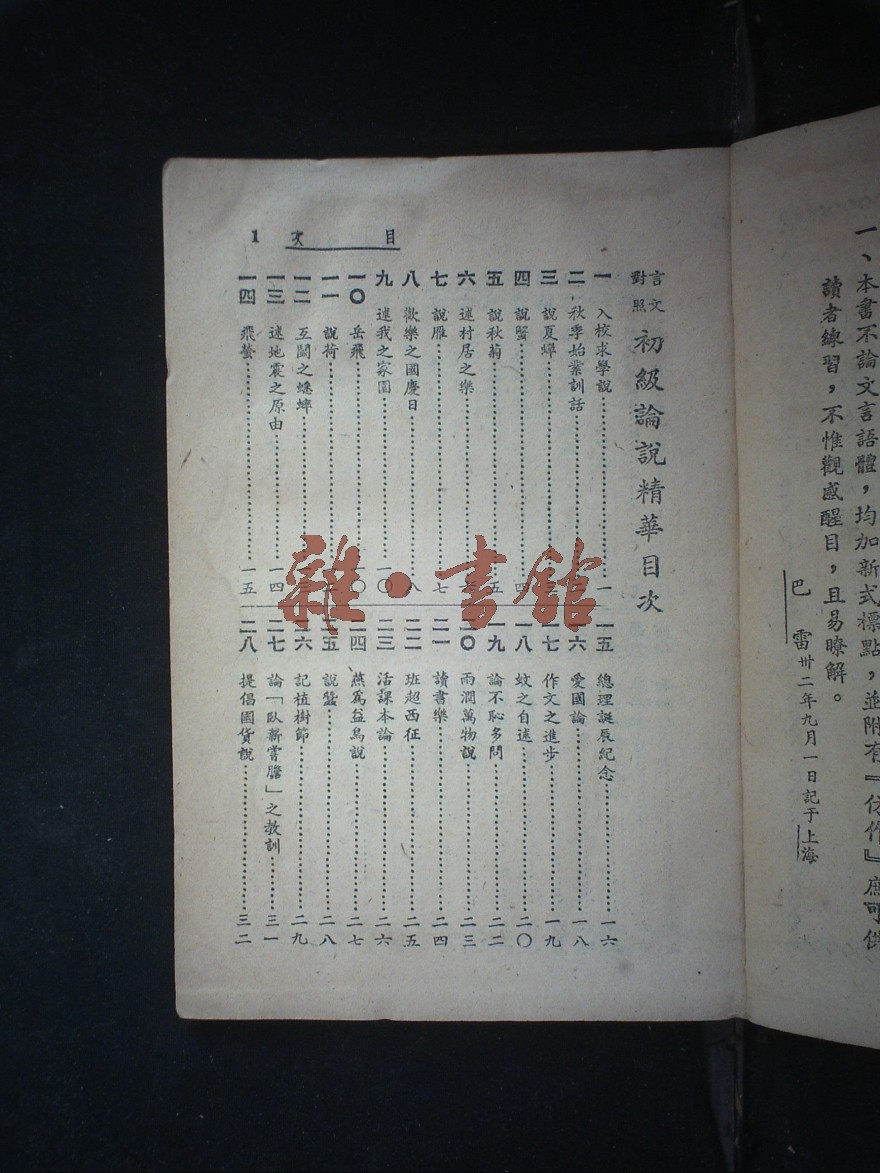 一、本書不論文言語體，均加新式標點，並附有『仿作』庶可供
讀者練習，不惟觀感醒目，且易暸解。
巴雷卅二年九月一日記于上海
目次 1
言文對照 初級論說精華目次
一 入校求學說 一
二 秋季始業訓話
三 說夏蟬
四 說蟹 四
五 說秋菊 五
六 述村居之樂
七 說雁 七
八 歡樂之國慶日 八
九 述我之家園 一〇
一〇 岳飛
一一 說荷
一二 互鬭之蟋蟀
一三 述地震之原由 一四
一四 飛螢 一五
一五 總理誕辰紀念 一六
一六 愛國論 一八
一七 作文之進步 一九
一八 蚊之自述 二〇
一九 論不恥多問 二二
二〇 雨潤萬物說 二三
二一 讀書樂 二四
二二 班超西征 二五
二三 活課本論 二六
二四 燕為益鳥說 二七
二五 說蠶 二八
二六 記植樹節 二九
二七 論「臥薪嘗膽」之教訓 三一
二八 提倡國貨說 三二
雜·書館